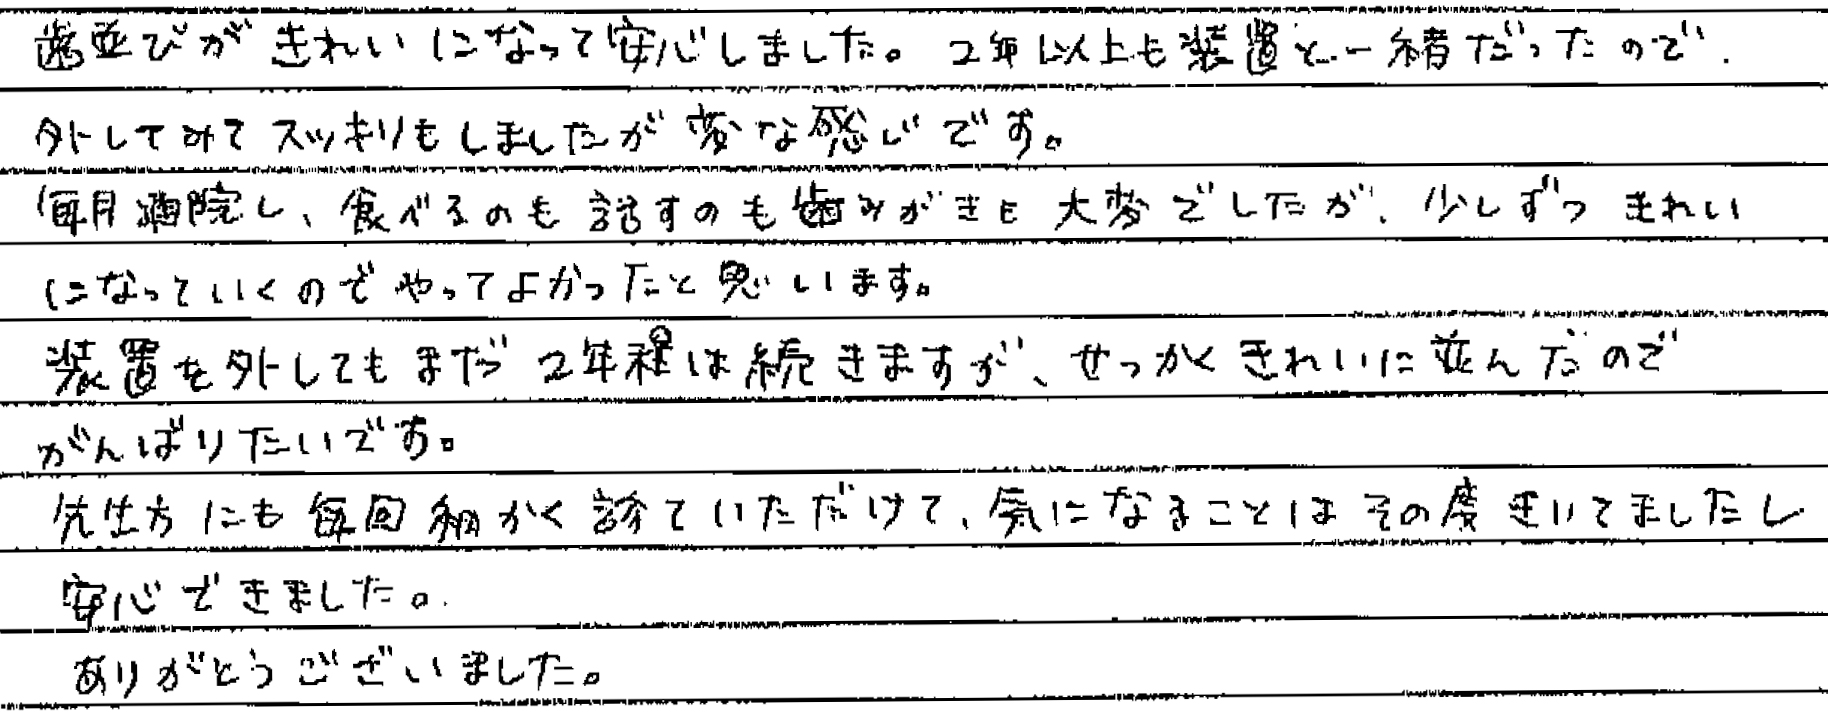 歯並びがきれいになって安心しました。2年以上も装置と一緒だったので、
外してみてスッキリもしましたが変な感じです。
毎月通院し、食べるのも話すのも歯みがきも大変でしたが、少しずつきれい
になっていくのでやってよかったと思います。
装置を外してもまだ2年程は続きますが、せっかくきれいに並んだので
がんばりたいです。
先生方にも毎回細かく診ていただけて、気になることはその度きいてましたし
安心できました。
ありがとうございました。